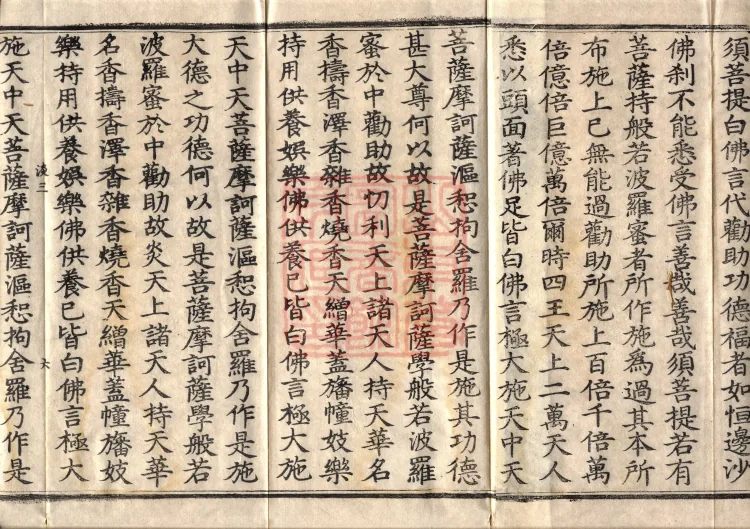 須菩提白佛言代勸助功德福者如恒邊沙
佛刹不能悉受佛言善哉善哉須菩提若有
菩薩持般若波羅蜜者所作施為過其本所
布施上已無能過勸助所施上百倍千倍萬
倍億倍巨億萬倍爾時四王天上二萬天人
悉以頭面著佛足皆白佛言極大施天中天
菩薩摩訶薩漚惒拘舍羅乃作是施其功德
甚大尊何以故是菩薩摩訶薩學般若波羅
蜜於中勸助故忉利天上諸天人持天華名
香擣香澤香雜香燒香天繒華蓋幢旛妓樂
持用供養娛樂佛供養已皆白佛言極大施
天中天菩薩摩訶薩漚惒拘舍羅乃作是施
大德之功德何以故是菩薩摩訶薩學般若
波羅蜜於中勸助故炎天上諸天人持天華
名香擣香澤香雜香燒香天繒華蓋幢旛妓
樂持用供養娛樂佛供養已皆白佛言極大
施天中天菩薩摩訶薩漚惒拘舍羅乃作是